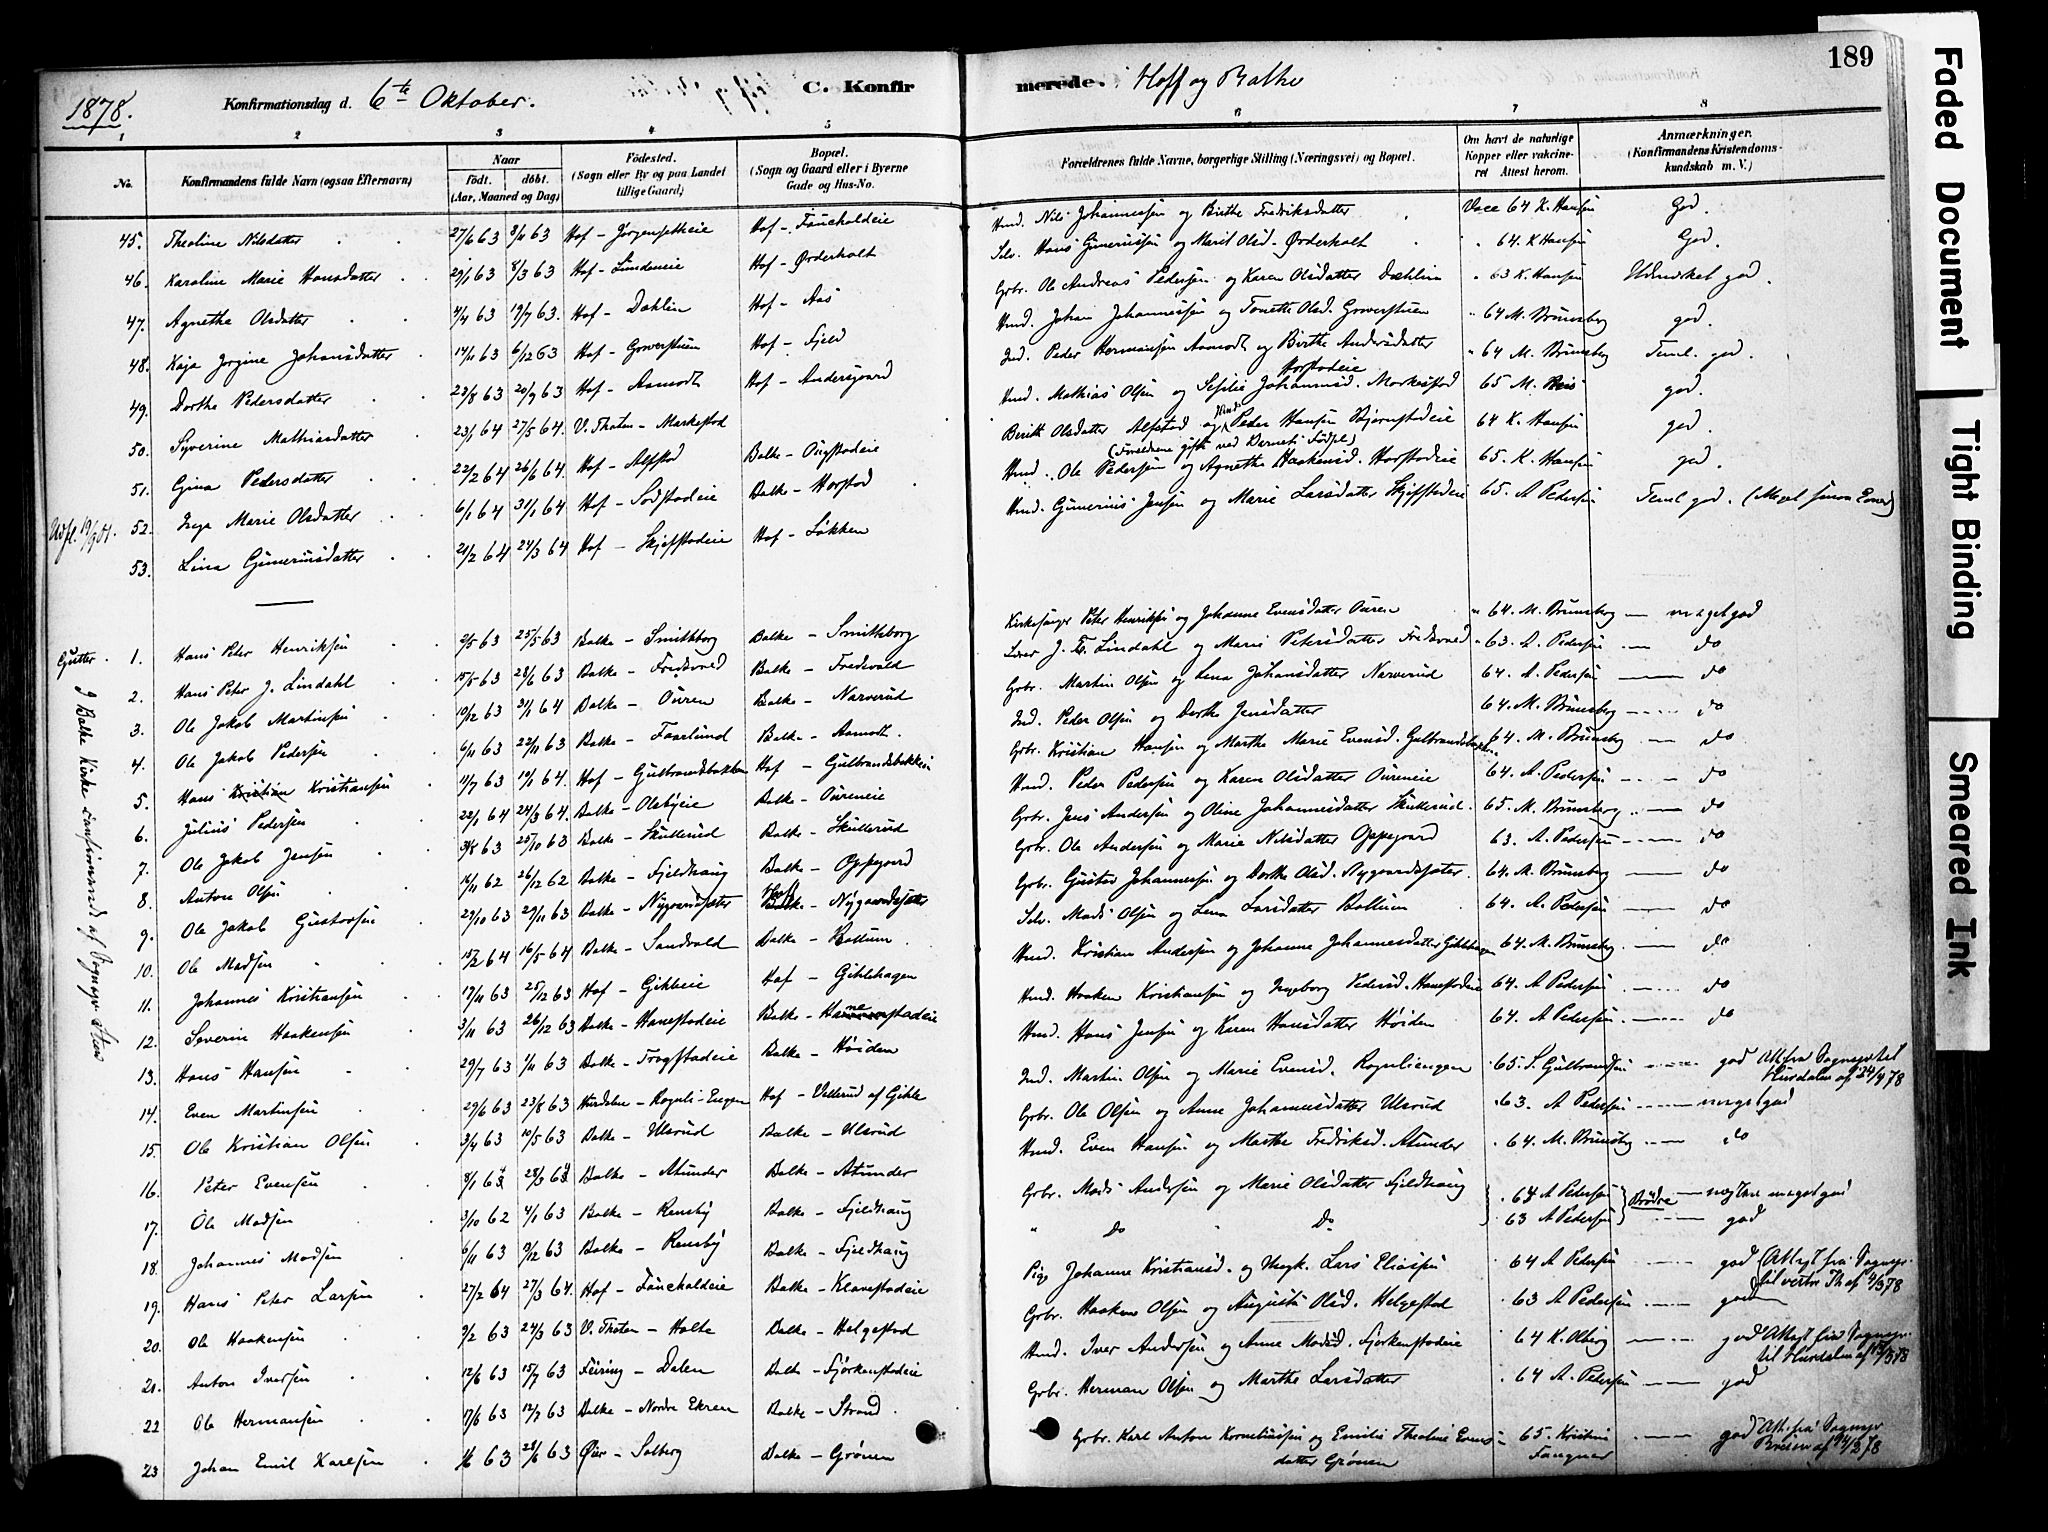 1878.
Konfirmationsdag d. 6te Oktober.
C. Konfir
merede. Hoff og Balke
189
Faded Document
Tight Binding
Smeared Ink
1 2 3 4 5 6 7 8
No. Konfirmandens fulde Navn (ogsaa Efternavn) Naar født. døbt. (Aar, Maaned og Dag) Fødested. (Sogn eller By og paa Landet tillige Gaard) Bopæl. (Sogn og Gaard eller i Byerne Gade og Hus-No.
Forældrenes fulde Navne, borgerlige Stilling (Næringsvei) og Bopæl. Om havt de naturlige Kopper eller vakcineret Attest herom. Anmærkninger. (Konfirmandens Kristendomskundskab m. V.)
45. Theoline Nilsdatter 27/6 63 8/11 63 Hof – Jørgensetheie Hof – Fauchaldeie Hmd. Nils Johannessen og Birthe Fredriksdatter Vacc 64 K. Hansen God.
46. Karoline Marie Hansdatter 29/1 63 8/3 63 Hof – Lindeneie Hof – Ørderholt Selv. Hans Gunerussen og Marit Olsd. Ørderholt " 64. K Hansen God.
47. Agnethe Olsdatter 4/4 63 19/7 63. Hof – Dæhlin Hof – Aas Grbr. Ole Andreas Pedersen og Karen Olsdatter Dæhlin " 63 K. Hansen Udmerket god.
48. Kaja Jorgine Johansdatter 14/11 63 6/12 63 Hof – Gowerstuen Hof – Fjeld Hmd. Johan Johannessen og Tonette Olsd. Gowerstuen " 64 M. Brunsberg god.
49. Dorthe Pedersdatter 23/8 63 20/9 63 Hof – Aamodt Hof – Andersgaard Ind. Peder Hermansen Aamodt og Birthe Andersdatter " 64 M. Brunsberg Teml. god.
50. Syverine Mathiasdatter 23/1 64 27/5 64. V. Thoten – Markestad Hmd. Mathias Olsen og Sefilie Johannesd. Markestad 65 M. god.
51. Gina Pedersdatter 22/2 64 26/6 64. Hof – Alfstad Balke – Ougstadeie Beritt Olsdatter Alfstad og Hmd. Peder Hansen Bjørnstadeie 64 K. Hansen god.
(Forældrene gifte ved Barnets Fødsel)
Udfl. 19/9 01. 52. Inga Marie Olsdatter 6/1 64 31/1 64 Hof – Sodstadeie Balke – Horstad Hmd. Ole Pedersen og Agnethe Haakensd. Horstadeie 65. K. Hansen god.
53. Lina Gunerusdatter 21/2 64 24/3 64 Hof – Skjefstadeie Hof – Løkken Hmd. Gunerius Jensen og Marie Larsdatter Skjefstadeie 65. A Pedersen Teml god.
Gutter.
I Balke Kirke confirmerede af Sognepr. Steen
1. Hans Peter Henriksen 2/5 63 25/5 63 Balke – Smithborg Balke – Smithborg Kirkesanger Peter Henriksen og Johanne Evensdatter Ouren " 64. M. Brunsberg meget god
2. Hans Peter J. Lindahl 15/5 63 28/6 63 Balke – Fredsvad Balke – Fredsvold Lærer J. F. Lindahl og Marie Petersdatter Fredsvad " 63. A. Pedersen do
3. Ole Jakob Martinsen 19/12 63 31/1 64 Balke – Ouren Balke – Narverud Grbr. Martin Olsen og Lena Johansdatter Narverud 64. A. Pedersen do
4. Ole Jakob Pedersen 6/11 63 22/11 63 Balke – Faarlund Balke – Aamodt. Ind. Peder Olsen og Dorthe Jensdatter 64. M. Brunsberg do
5. Hans Kristian Kristiansen 11/7 63 19/1 64. Hof – Gulbrandsbakken Hof – Gulbrandsbakken Grbr. Kristian Hansen og Marthe Marie Evensd. Gulbrandsbakken 64. M. Brunsberg do
6. Julius Pedersen 22/1 64 24/3 64. Balke – Olsbyeie Balke – Oureneie Hmd. Peder Pedersen og Karen Olsdatter Oureneie 64. A. Pedersen do
7. Ole Jakob Jensen 31/8 63 25/10 63 Balke – Skullerud Balke – Skullerud Grbr. Jens Andersen og Oline Johannesdatter Skullerud. 65. M. Brunsberg. do
8. Anton Olsen 16/11 62 26/12 62 Balke – Fjeldhaug Balke – Oppegaard Grbr. Ole Andersen og Marie Nilsdatter Oppegaard 63. A. Pedersen do
9. Ole Jakob Gustavsen 29/10 63 29/11 63 Balke – Nygaardsæter Hof – Nygaardsæter Grbr. Gustav Johannessen og Dorthe Olsd. Nygaardsæter 64. M. Brunsberg do
10. Ole Madsen 15/2 64 16/5 64 Balke – Sandvold Balke – Bollum Selv. Mads Olsen og Lena Larsdatter Bollum 64. A. Pedersen do
11. Johannes Kristiansen 17/11 63 25/12 63 Hof – Gihleeie Hof – Gihlehagen Hmd. Kristian Andersen og Johanne Johannesdatter Gihlehagen 64. M. Brunsberg. do
12. Severin Haakensen 3/11 63 26/12 63 Balke – Hanestadeie Balke – Hanestadeie Hmd. Haaken Kristiansen og Ingeborg Pedersd. Hanestadeie 64. A Pedersen do
13. Hans Hansen 29/7 63 1/11 63 Balke – Trogstadeie Balke – Høiden Hmd. Hans Jensen og Karen Hansdatter Høiden 64. A Pedersen do
14. Even Martinsen 29/6 63 23/8 63 Hurdalen – Rognli-Engen Hof – Vellerud af Gihle Ind. Martin Olsen og Marie Evensd. Rognliengen 65. S. Gulbrandsen god Att. fra Sognepr. til Hurdalen af 24/4 78
15. Ole Kristian Olsen 3/4 63 10/5 63 Balke – Ulsrud Balke – Ulsrud Grbr. Ole Olsen og Anne Johannesdatter Ulsrud 63. A Pedersen meget god
16. Peter Evensen 8/1 64 28/3 64 Balke – Stunder Balke – Stunder Hmd. Even Hansen og Marthe Fredriksd. Stunder 64. M. Brunsberg do
17. Ole Madsen 3/10 62 4/1 63 Balke – Rensby Balke – Fjeldhaug Grbr. Mads Andersen og Marie Olsdatter Fjeldhaug 64 A Pedersen Brødre næsten meget god
18. Johannes Madsen 6/11 63 9/12 63 Balke – Rensby Balke – Fjeldhaug " do do 63 A Pedersen god
19. Hans Peter Larsen 27/2 64 27/3 64. Hof – Fauchaldeie Balke – Klavestadeie Pige Johanne Kristiansd. og Ungk. Lars Eliassen 64 A Pedersen god (Attest fra Sognepr. til vestre Th af 4/3 78
20. Ole Haakensen 9/2 63 24/3 63 V. Thoten – Holte Balke – Helgestad Grbr. Haaken Olsen og Augusta Olsd. Helgestad 63 A Pedersen god
21. Anton Iversen 12/6 63 15/7 63 Feiring – Dalen Balke – Fjørkenstadeie Hmd. Iver Andersen og Anne Madsd. Fjørkenstadeie 64 K. Olberg god Attest fra Sognepr. til Hurdalen af 13/3 78
22 Ole Hermansen 17/6 63 12/7 63 Balke – Nordre Ekren Balke – Strand. Grbr. Herman Olsen og Marthe Larsdatter 64 A. Pedersen god
23 Johan Emil Karlsen 1/6 63 28/6 63 Øier – Solberg Balke – Grønen Grbr. Karl Anton Korneliussen og Emilie Theoline Evensdatter Grønen 65. Kristine Fangner god Att. fra Sognepr.